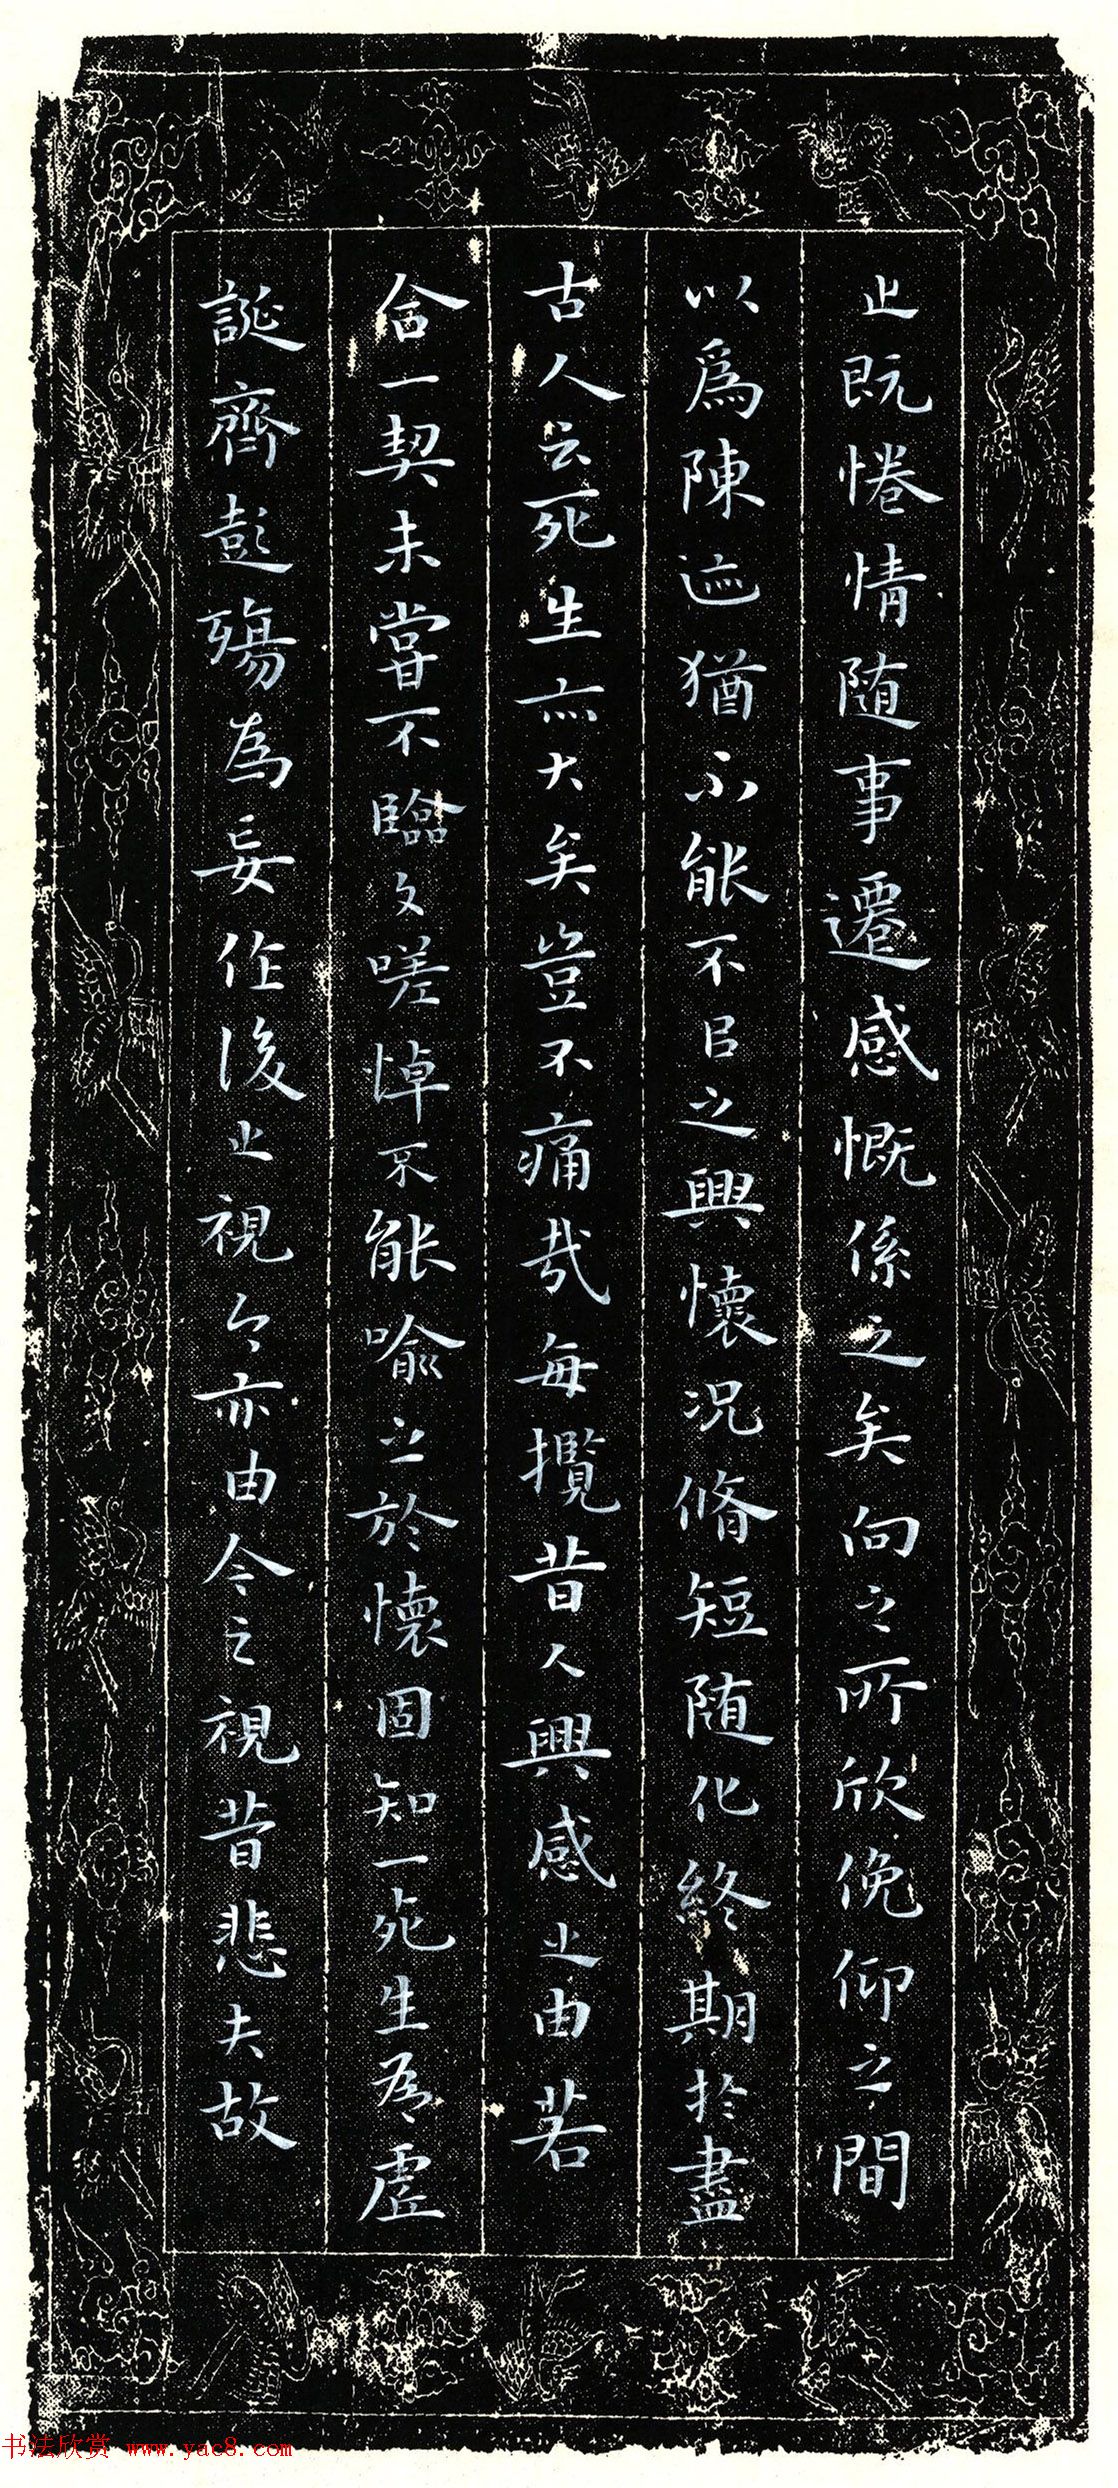 止既惓情随事遷感慨係之矣向之所欣俛仰之間
以爲陳迹猶不能不㠯之興懷况脩短随化終期於盡
古人云死生亦大矣豈不痛哉每攬昔人興感之由若
合一契未嘗不臨文嗟悼不能喻之於懷固知一死生為虛
誕齊彭殤為妄作後之視今亦由今之視昔悲夫故
书法欣赏 www.yac8.com